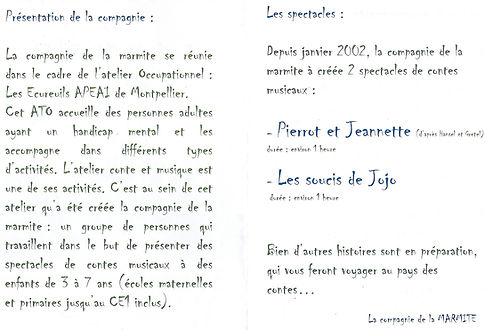 Présentation de la compagnie :
La compagnie de la marmite se réunie
dans le cadre de l'atelier Occupationnel :
Les Ecureuils APEAI de Montpellier.
Cet ATO accueille des personnes adultes
ayant un handicap mental et les
accompagne dans différents types
d'activités. L'atelier conte et musique est
une de ses activités. C'est au sein de cet
atelier qu'a été créée la compagnie de la
marmite : un groupe de personnes qui
travaillent dans le but de présenter des
spectacles de contes musicaux à des
enfants de 3 à 7 ans (écoles maternelles
et primaires jusqu'au CE1 inclus).
Les spectacles :
Depuis janvier 2002, la compagnie de la
marmite à créée 2 spectacles de contes
musicaux :
- Pierrot et Jeannette (d'après Hansel et Gretel)
durée : environ 1 heure
- Les soucis de Jojo
durée : environ 1 heure
Bien d'autres histoires sont en préparation,
qui vous feront voyager au pays des
contes...
La compagnie de la MARMITE